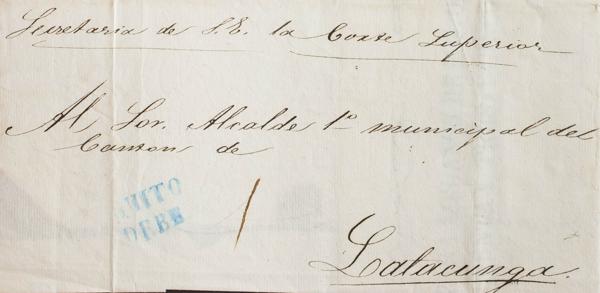 Secretaria de S.E. la Corte Superior
Al Sor. Alcalde 1º municipal del
Canton de
QUITO
DEBE
1
Latacunga.